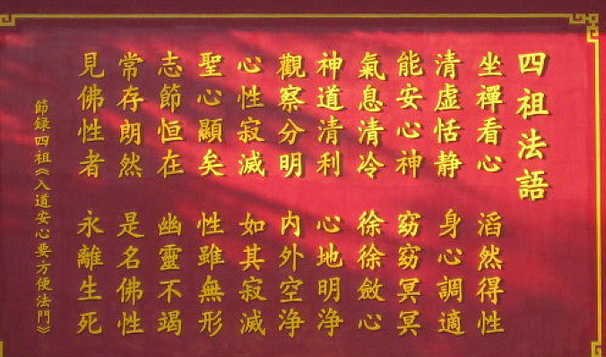 四祖法語
坐禪看心 滔然得性
清虛恬静 身心調適
能安心神 窈窈冥冥
氣息清冷 徐徐斂心
神道清利 心地明浄
觀察分明 内外空浄
心性寂滅 如其寂滅
聖心顯矣 性雖無形
志節恒在 幽靈不竭
常存朗然 是名佛性
見佛性者 永離生死
節録四祖《入道安心要方便法門》